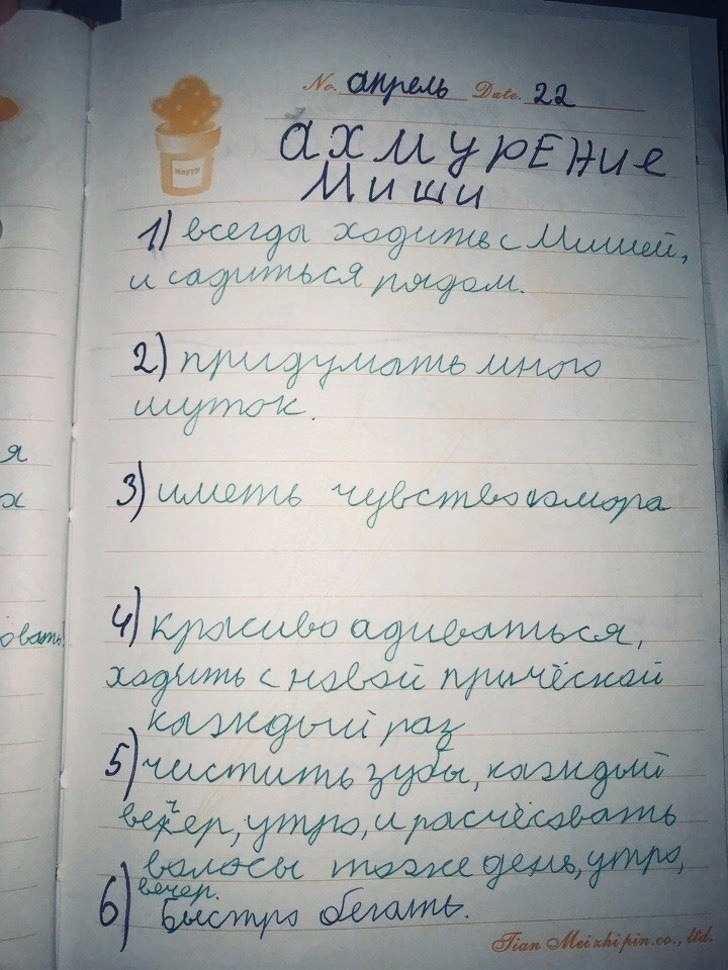 No. апрель Date. 22
ахмурЕние
Миши
1) всегда ходить с Мишей,
и садиться рядом.
2) придумать много
шуток.
я
х
3) иметь чувство юмора
4) красиво адиваться,
овать
ходить с новой причёской
каждый раз
5) чистить зубы, каждый
вечер, утро, и расчёсовать
волосы тоже день, утро,
вечер.
6) Быстро бегать.
Tian Meizhipin.co., ltd.